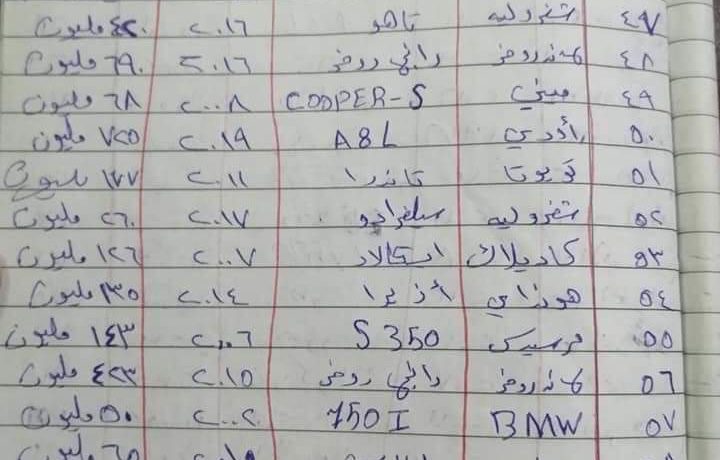 ٤٧ شفروليه تاهو ٢٠١٦ ٤٢٠ مليون
٤٨ لاندروفر رانج روفر ٢٠١٦ ٦٩٠ مليون
٤٩ ميني COOPER-S ٢٠٠٨ ٦٨ مليون
٥٠ أودي A8L ٢٠١٩ ٧٢٥ مليون
٥١ تويوتا تاندرا ٢٠١١ ١٧٧ مليون
٥٢ شفروليه سيلفرادو ٢٠١٧ ٢٦٠ مليون
٥٣ كاديلاك اسكالاد ٢٠٠٧ ١٢٦ مليون
٥٤ هونداي ازيرا ٢٠١٤ ١٣٥ مليون
٥٥ مرسيدس S 350 ٢٠٠٦ ١٤٣ مليون
٥٦ لاندروفر رانج روفر ٢٠١٥ ٤٢٣ مليون
٥٧ BMW 750 I ٢٠٠٢ ٥٠ مليون